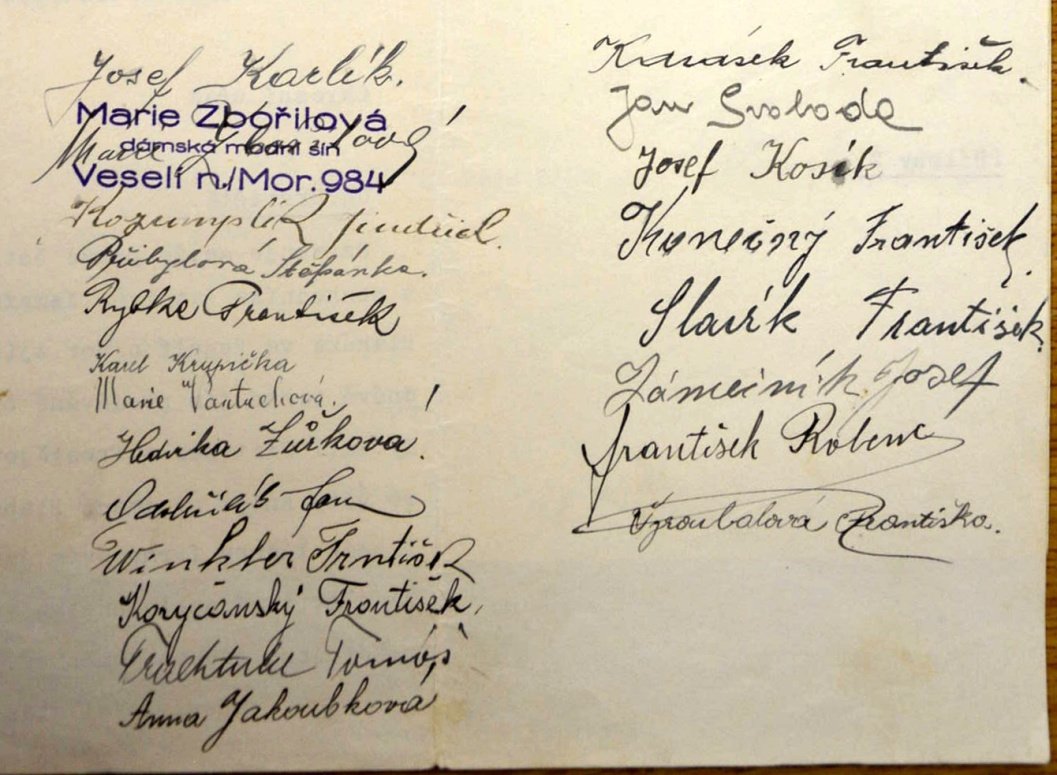 Josef Karlík.
Marie Zbořilová
Marie Zbořilová
dámská módní síň
Veselí n/Mor. 984
Rozumplík Jindřich.
Přibylová Štěpánka.
Rybka František
Karel Krupička
Marie Vantuchová.
Hedvika Zůrkova.
Odstrčilík Jan
Winkler Frntišek
Koryčánský František,
Truchtule Tomáš
Anna Jakoubkova
Karásek František.
Jan Svoboda
Josef Kosík
Konečný František
Slavík František.
Zámečník Josef
František Robenc
Vyroubalová Františka.